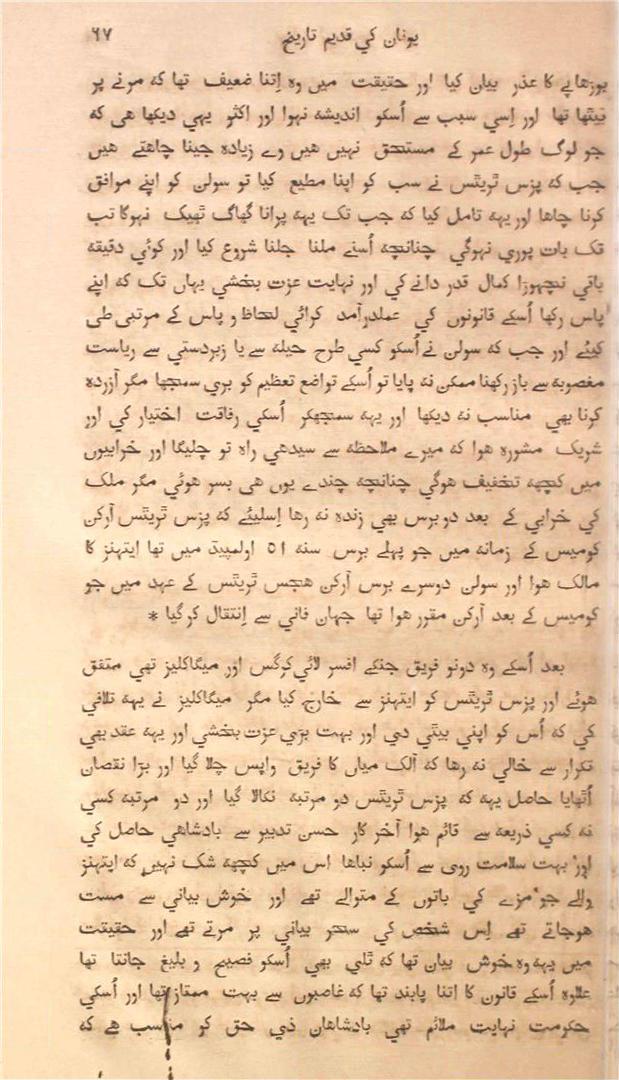 یونان کي قدیم تاریخ ۶۷
بوڑھاپے کا عذر بیان کیا اور حقیقت میں وہ اِتنا ضعیف تھا کہ مرنے پر
بیٹھا تھا اور اِسي سبب سے اُسکو اندیشہ نہوا اور اکثر یہي دیکھا هی که
جو لوگ طول عمر کے مستحق نہیں هیں وے زیادہ جینا چاهتے هیں
جب که پزس ٹریٹس نے سب کو اپنا مطیع کیا تو سولن کو اپنے موافق
کرنا چاها اور یہہ تامل کیا که جب تک یہہ پرانا گھاگ ٹھیک نہوگا تب
تک بات پوري نہوگي چنانچہ اُسنے ملنا جلنا شروع کیا اور کوئي دقیقه
باقي نچھوڑا کمال قدر دانے کي اور نہایت عزت بخشي یہاں تک که اپنے
پاس رکھا اُسکے قانونوں کي عملدرآمد کرائي لحاظ و پاس کے مرتبي طی
کیئے اور جب که سولن نے اُسکو کسي طرح حیله سے یا زبردستي سے ریاست
مغصوبه سے باز رکھنا ممکن نه پایا تو اُسکے تواضع تعظیم کو بري سمجھا مگر آزردہ
کرنا بھي مناسب نه دیکھا اور یہہ سمجھکر اُسکي رفاقت اختیار کي اور
شریک مشورہ هوا که میرے ملاحظه سے سیدھي راہ تو چلیگا اور خرابیوں
میں کچھه تخفیف هوگي چنانچه چندے یوں هی بسر هوئي مگر ملک
کي خرابي کے بعد دو برس بھي زندہ نه رها اِسلیئے که پزس ٹریٹس آرکن
کومیس کے زمانه میں جو پہلے برس سنه ۵۱ اولمپیڈ میں تھا ایتهنز کا
مالک هوا اور سولن دوسرے برس آرکن هجس ٹریٹس کے عہد میں جو
کومیس کے بعد آرکن مقرر هوا تھا جہان فاني سے اِنتقال کرگیا *
بعد اُسکے وہ دونو فریق جنکے افسر لائي کرگس اور میگاکلیز تھي متفق
هوئے اور پزس ٹریٹس کو ایتهنز سے خارج کیا مگر میگاکلیز نے یہہ تلافي
کي که اُس کو اپني بیٹي دي اور بہت بڑي عزت بخشي اور یہہ عقد بھي
تکرار سے خالي نه رها که آلک میاں کا فریق واپس چلا گیا اور بڑا نقصان
اُٹھایا حاصل یہه که پزس ٹریٹس دو مرتبه نکالا گیا اور دو مرتبه کسي
نه کسي ذریعه سے قائم هوا آخر کار حسن تدبیر سے بادشاهي حاصل کي
اور بہت سلامت روي سے اُسکو نباها اس میں کچھه شک نہیں که ایتهنز
والے جو مزے کي باتوں کے متوالے تھے اور خوش بیاني سے مست
هوجاتے تھے اِس شخص کي سحر بیاني پر مرتے تھے اور حقیقت
میں یہه وہ خوش بیان تھا که ٹلي بھي اُسکو فصیح و بلیغ جانتا تھا
علاوہ اُسکے قانون کا اتنا پابند تھا که غاصبوں سے بہت ممتاز تھا اور اُسکي
حکومت نہایت ملائم تھي بادشاهان ذي حق کو مناسب هے که